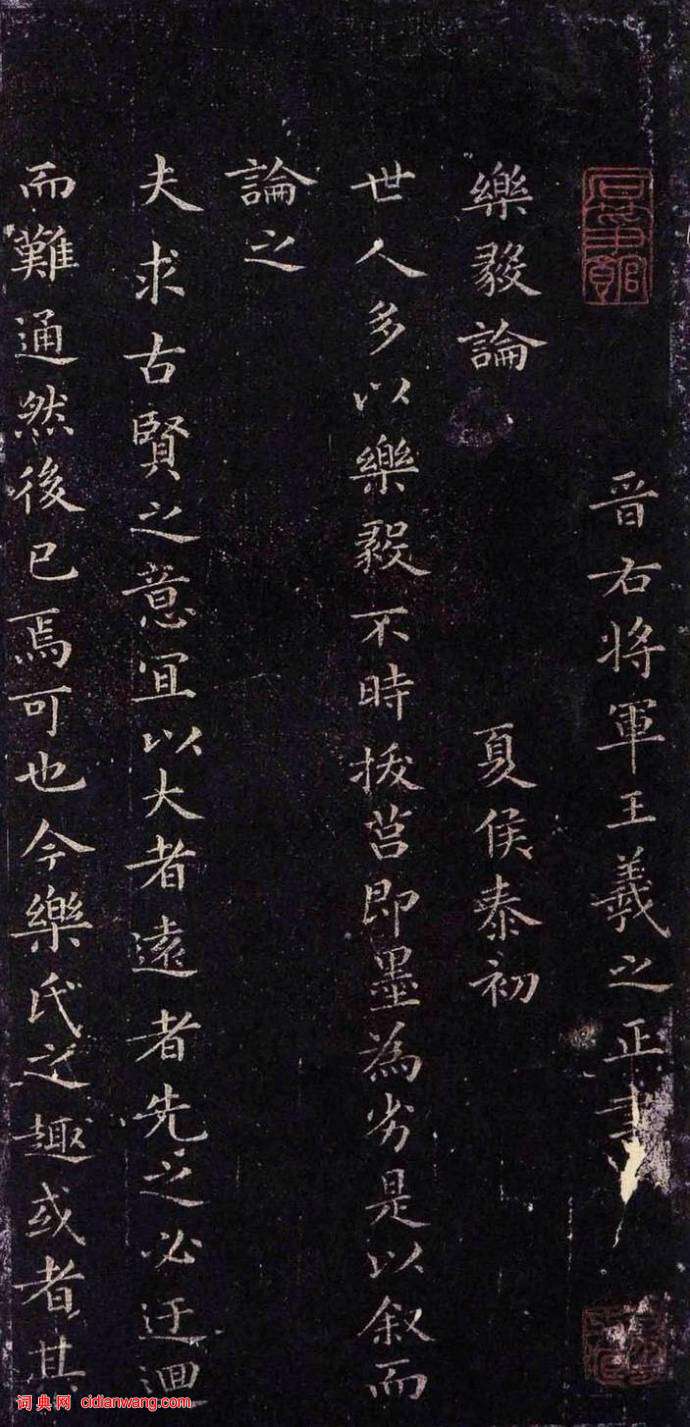 晋右将軍王羲之正書
樂毅論 夏侯泰初
世人多以樂毅不時拔莒即墨為劣是以叙而
論之
夫求古賢之意宜以大者遠者先之必迂迴
而難通然後已焉可也今樂氏之趣或者其
词典网 cidianwang.com